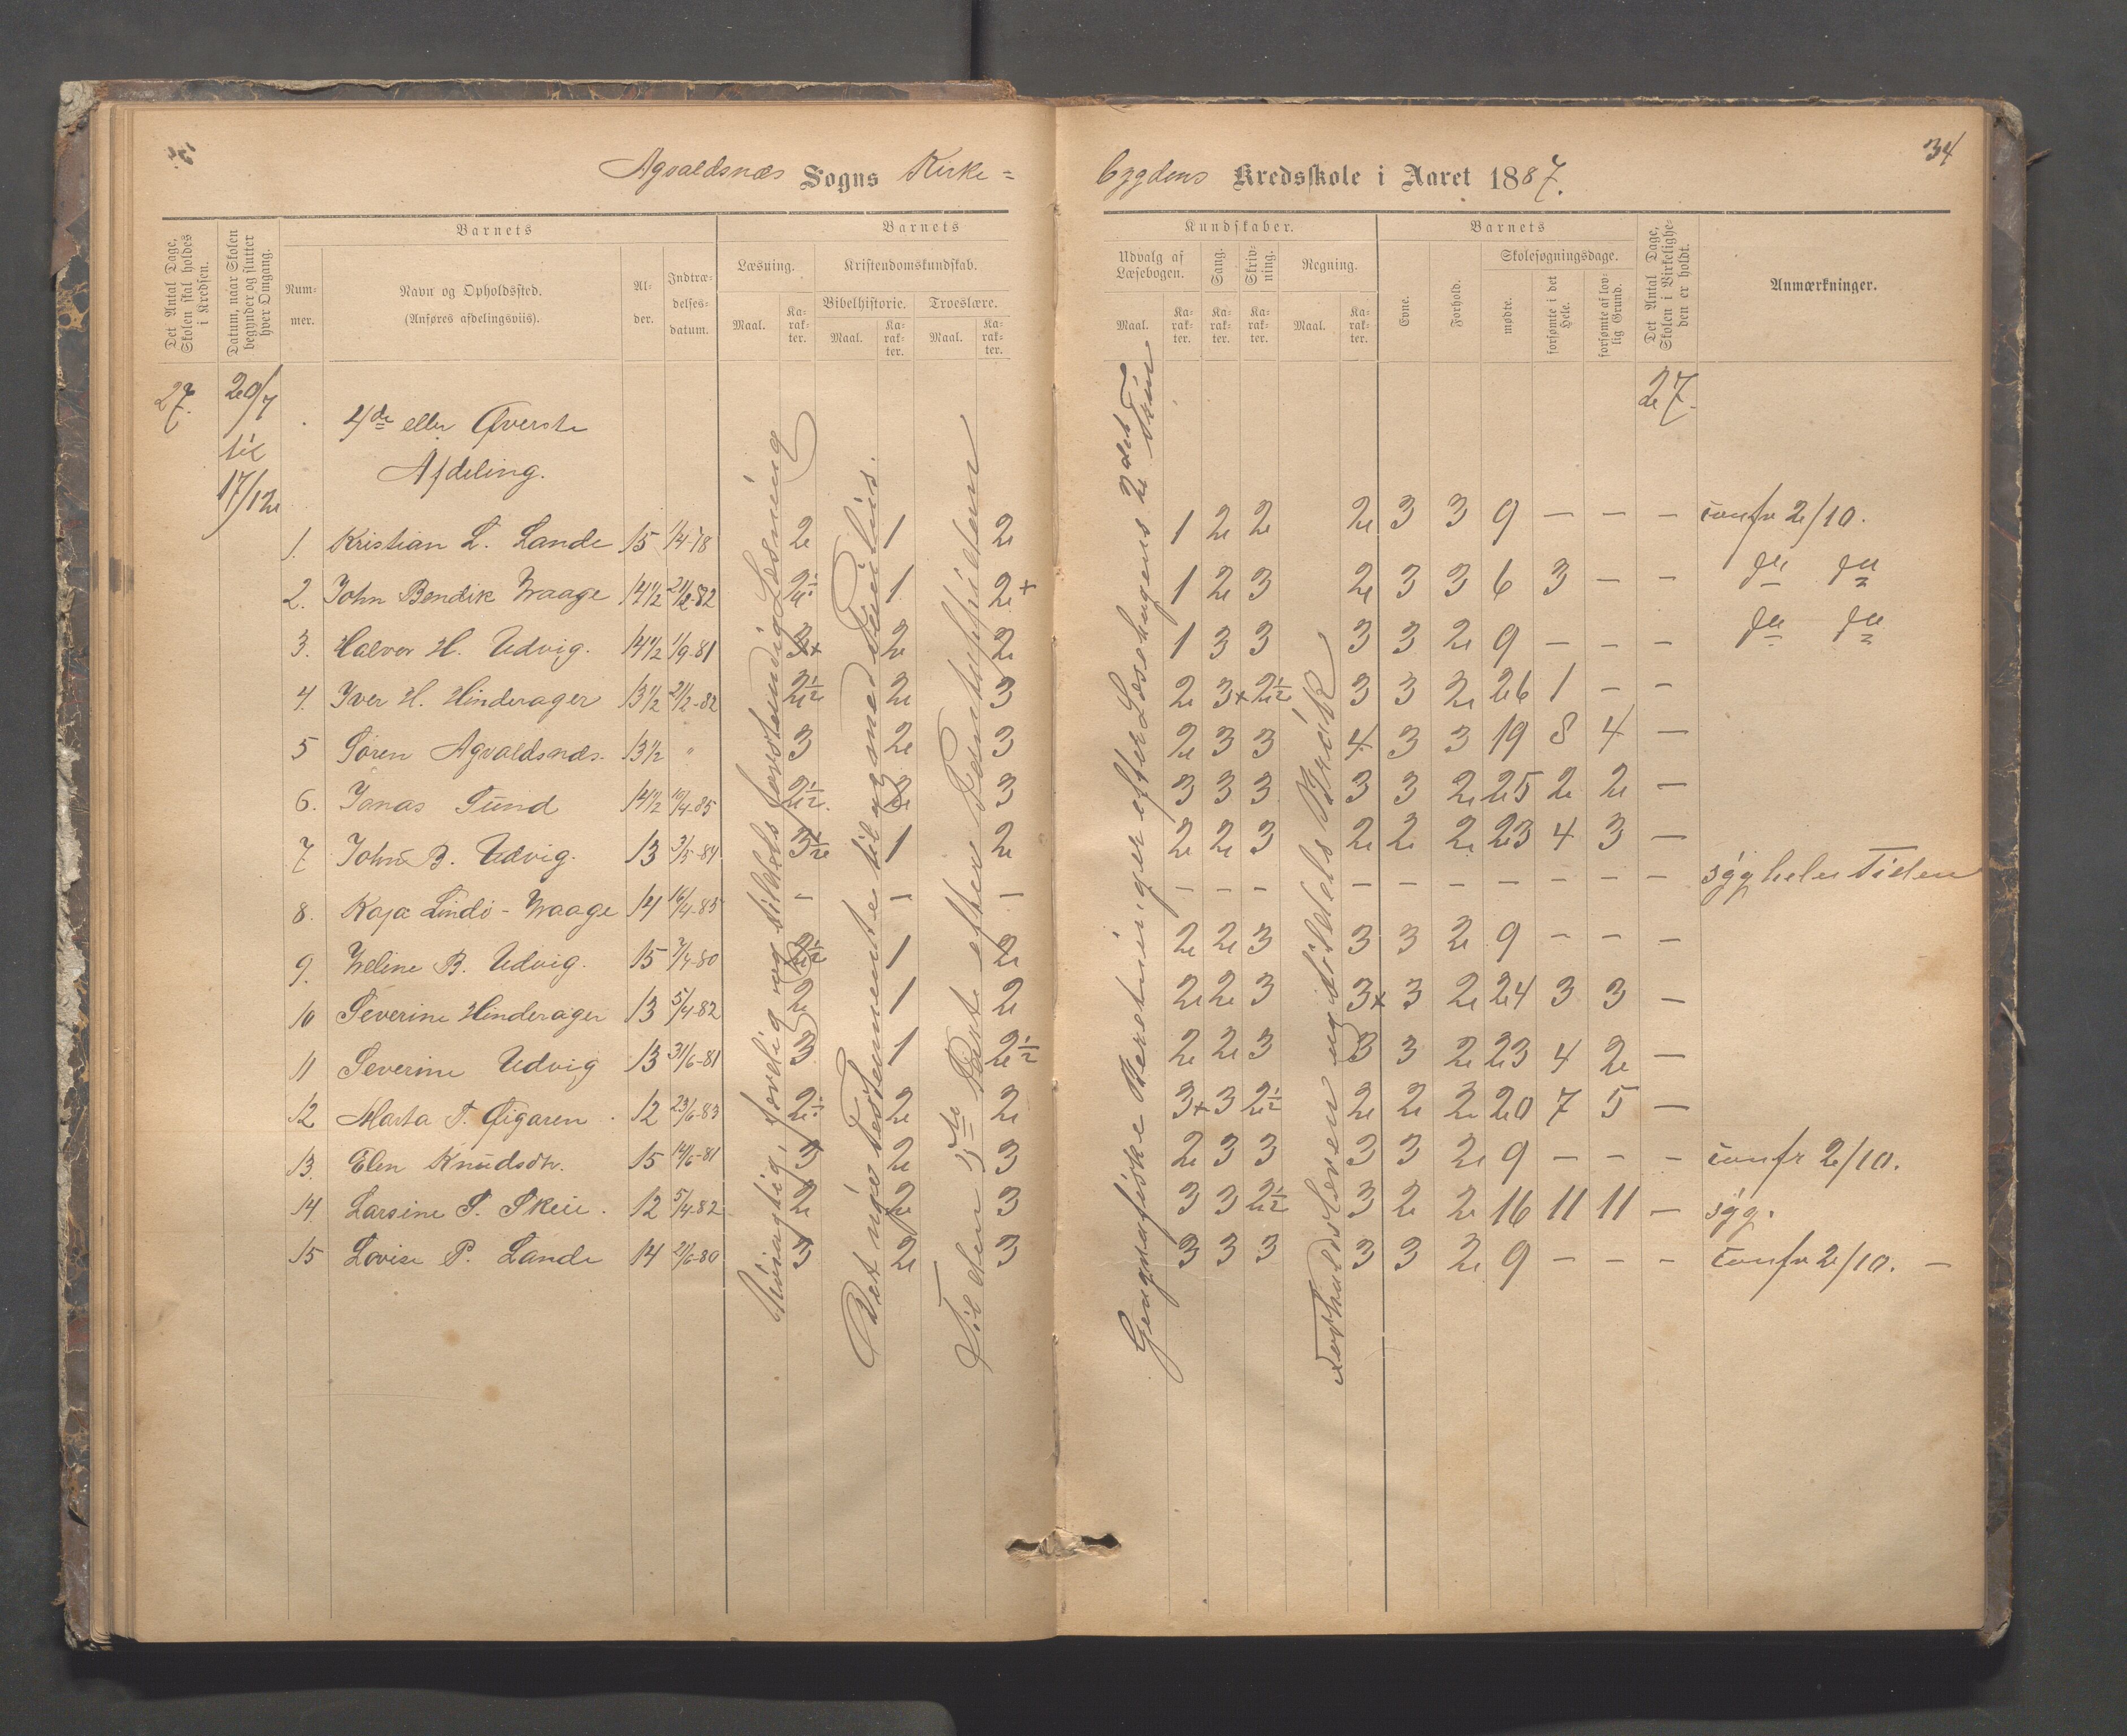 Agvaldsnæs Sogns Kirke=
bygdens Kredsskole i Aaret 1887.
34
Det Antal Dage, Skolen skal holdes i Kredsen.
Datum, naar Skolen begynder og slutter hver Omgang.
Barnets
Nummer.
Navn og Opholdssted.
(Anføres afdelingsviis).
Alder.
Indtrædelsesdatum.
Barnets
Læsning.
Kristendomskundskab.
Bibelhistorie. Troeslære.
Maal. Karakter. Maal. Karakter. Maal. Karakter.
Kundskaber.
Udvalg af Læsebogen. Sang. Skrivning. Regning.
Maal. Karakter. Karakter. Karakter. Maal. Karakter.
Barnets
Evne. Forhold.
Skolesøgningsdage.
mødte. forsømte i det Hele. forsømte af lovlig Grund.
Det Antal Dage, Skolen i Virkeligheden er holdt.
Anmærkninger.
27. 20/7 til 17/12
4de eller Øverste
Afdeling.
27.
1. Kristian L. Lande 15 14-78 2 1 2 1 2 2 2 3 3 9 — — — confr 2/10.
2. John Bendik Waage 14 1/2 21/2-82 2 1/2 1 2+ 1 2 3 2 3 3 6 3 — — do do
3. Halvor H. Udvig. 14 1/2 1/9-81 3+ 2 2 1 3 3 3 3 2 9 — — — do do
4. Iver H. Hinderager 13 1/2 21/2-82 2 1/2 2 3 2 3+ 2 1/2 3 3 2 26 1 — —
5 Søren Agvaldsnæs. 13 1/2 " 3 2 3 2 3 3 4 3 3 19 8 4 —
6. Jonas Sund 14 1/2 10/4-85 2 1/2 2 3 3 3 3 3 3 2 25 2 2 —
7 John B. Udvig. 13 3/5-84 3 1/2 1 2 2 2 3 2 2 2 23 4 3 —
8. Kaja Lindö - Waage 14 16/4-85 — — — — — — — — — — — — — syg hele Tiden
9. Weline B. Udvig. 15 7/4-80 2 1/2 1 2 2 2 3 3 3 2 9 — — —
10 Severine Hinderager 13 5/4-82 2 1 2 2 2 3 3+ 3 2 24 3 3 —
11 Severine Udvig 13 31/6-81 3 1 2 1/2 2 2 3 3 3 2 23 4 2 —
12 Marta T. Øigaren. 12 23/6-83 2 1/2 2 2 3+ 3 2 1/2 2 2 2 20 7 5 —
13. Elen Knudsdtr. 15 14/6-81 3 2 3 2 3 3 3 3 2 9 — — — confr 2/10.
14. Larsine S. Skeie. 12 5/4-82 2 2 3 3 3 2 1/2 3 2 2 16 11 11 — syg.
15 Lovise P. Lande 14 2/6-80 3 2 3 3 3 3 3 3 2 9 — — — confr 2/10. —
Nøiagtig, færdig og tildels forstandig Læsning
Det nye Testamente til og med
Til den 3die Part efter Pontoppidan
Geografiske Beretninger efter Læsebogens 2det Trin
og tildels Brök